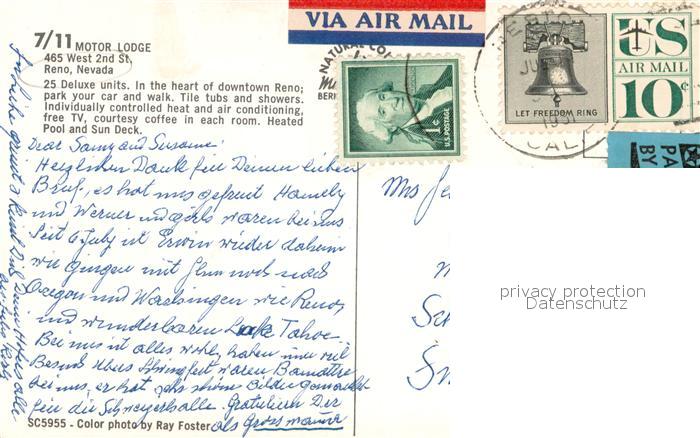 VIA AIR MAIL
7/11 MOTOR LODGE
465 West 2nd St.
Reno, Nevada
25 Deluxe units. In the heart of downtown Reno;
park your car and walk. Tile tubs and showers.
Individually controlled heat and air conditioning,
free TV, courtesy coffee in each room. Heated
Pool and Sun Deck.
NATURAL
BER
1¢
U.S. POSTAGE
LET FREEDOM RING
US
AIR MAIL
10¢
CAL
PA
BY
Dear Samy and Susanne!
Herzlichen Dank für Deinen lieben
Brief, es hat uns gefreut
und Werner und girls waren bei uns
Seit 6 July ist Erwin wieder daheim
wir gingen mit Ihm noch nach
Oregon und Washington wie Reno,
und wunderbaren Lake Tahoe
Bei uns ist alles wohl, haben immer viel
Besuch waren
bei uns, er hat sehr schöne Bilder gemacht
für die Schweizerhalle. Gratulieren Dir
als Grossmama
Mrs
privacy protection
Datenschutz
SC5955 - Color photo by Ray Foster